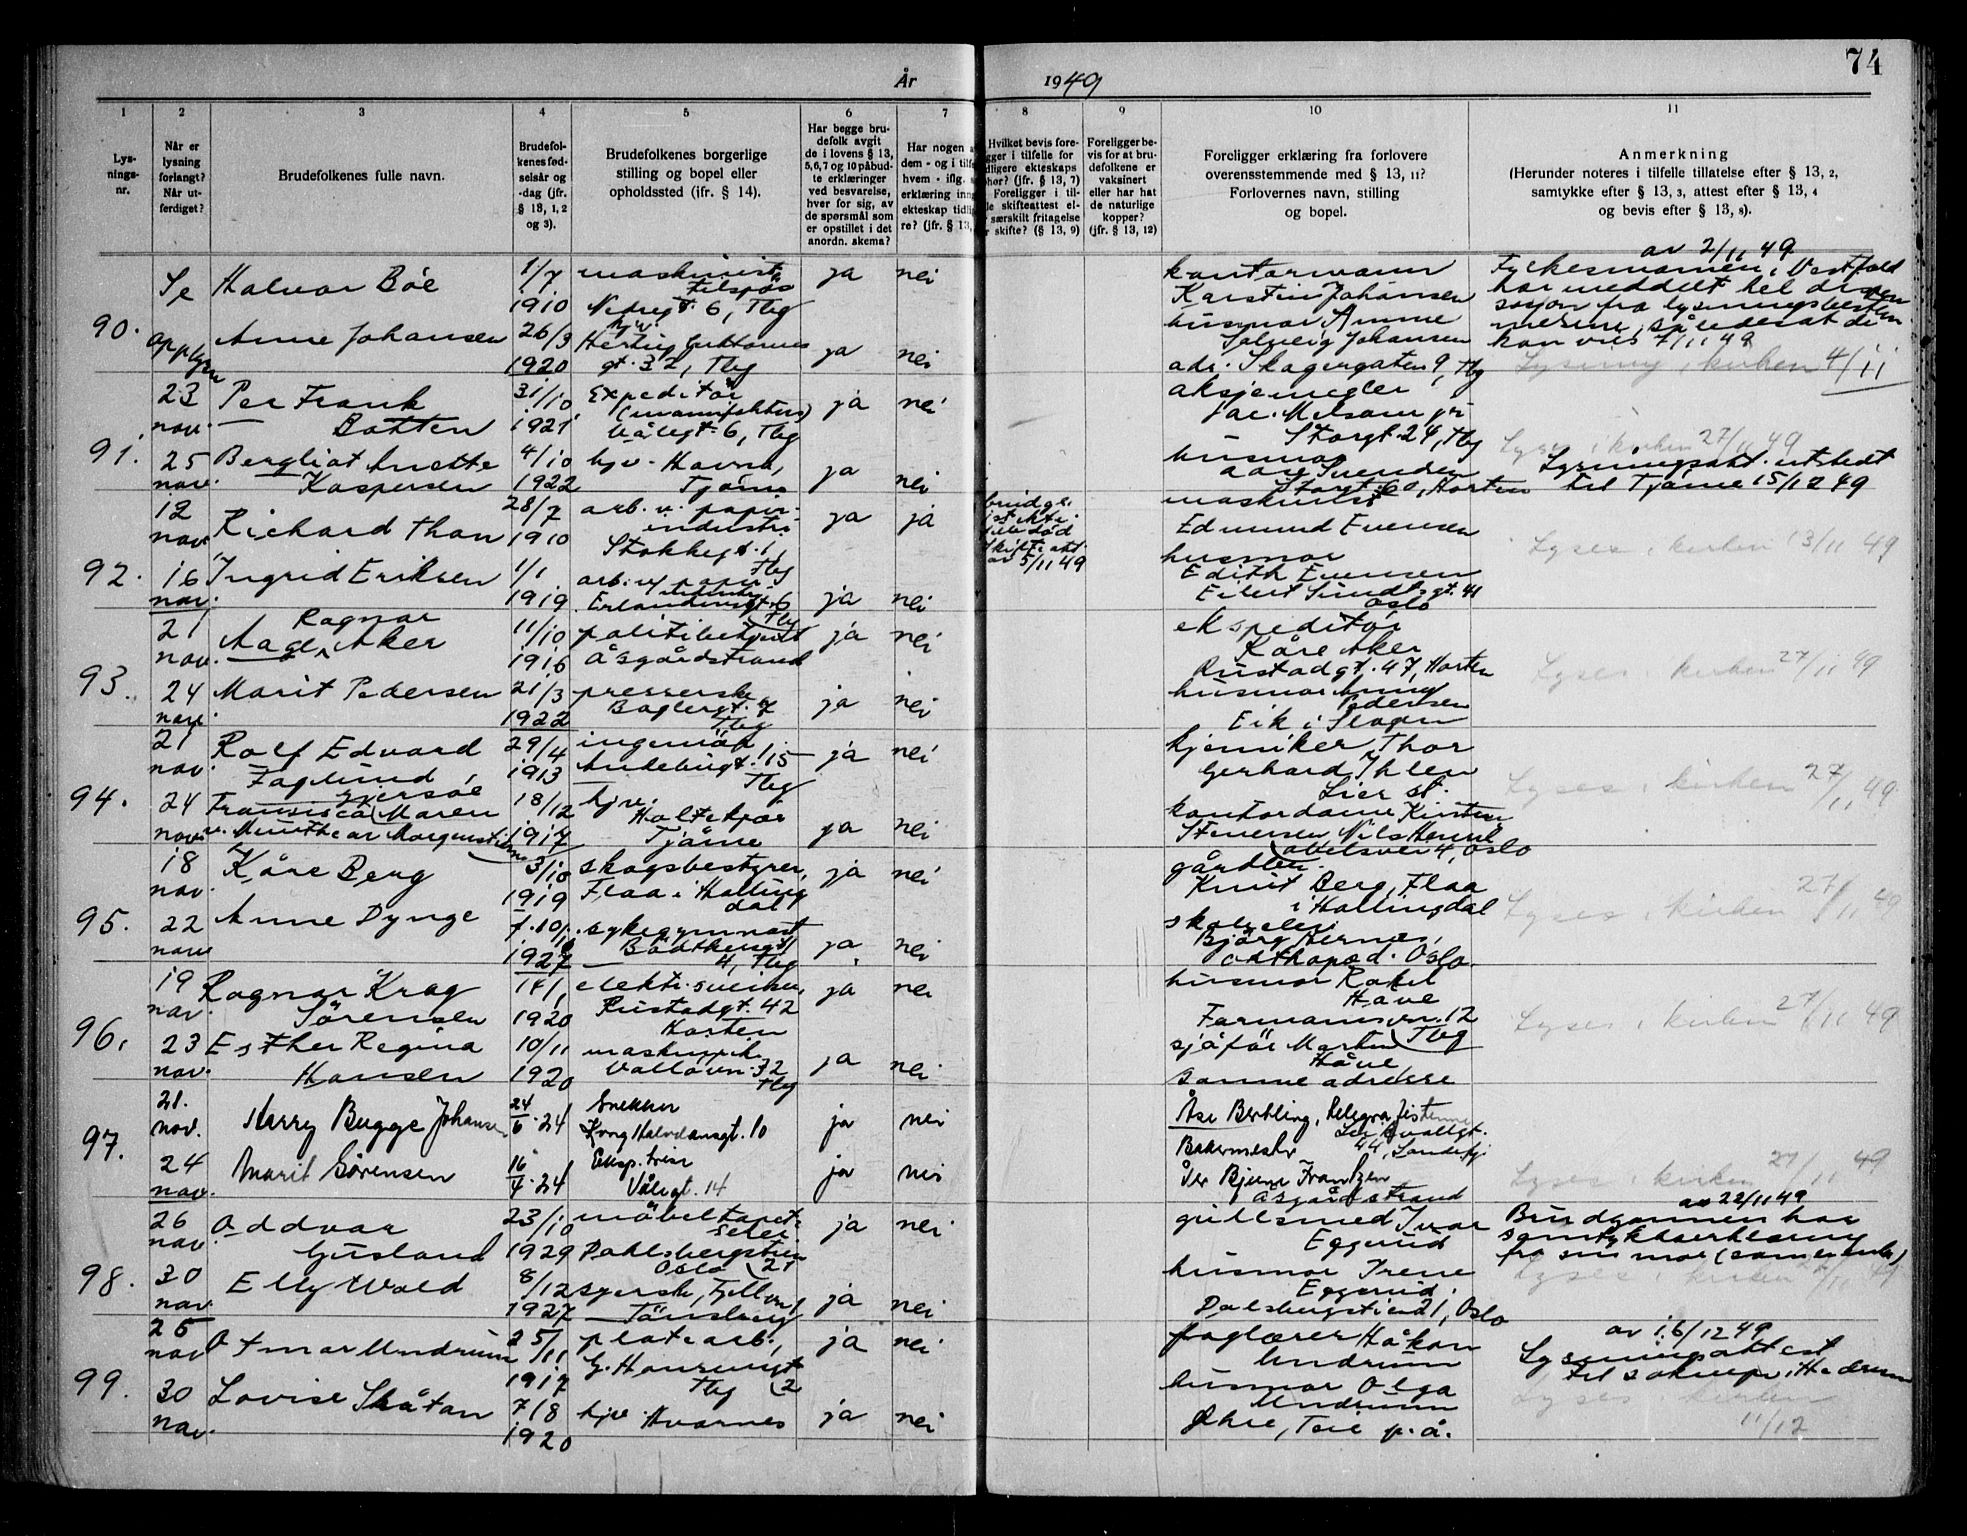 74
År 1949
1 2 3 4 5 6 7 8 9 10 11
Lys-
nings-
nr.
Når er
lysning
forlangt?
Når ut-
ferdiget?
Brudefolkenes fulle navn.
Brudefol-
kenes fød-
selsår og
-dag (jfr.
§ 13, 1, 2
og 3).
Brudefolkenes borgerlige
stilling og bopel eller
opholdssted (ifr. § 14).
Har begge bru-
defolk avgit
de i lovens § 13,
5,6,7 og 10 påbud-
te erklæringer
ved besvarelse,
hver for sig, av
de spørsmål som
er opstillet i det
anordn. skema?
Har nogen a
dem - og i tilf
hvem - iflg. s
erklæring inng
ekteskap tidlig
re? (jfr. § 13,
Hvilket bevis fore-
gger i tilfelle for
dligere ekteskaps
phør? (jfr. § 13, 7)
Foreligger i til-
le skifteattest el-
særskilt fritagelse
r skifte? (§ 13, 9)
Foreligger be-
vis for at bru-
defolkene er
vaksinert
eller har hat
de naturlige
kopper?
(jfr. § 13, 12)
Foreligger erklæring fra forlovere
overensstemmende med § 13, 11?
Forlovernes navn, stilling
og bopel.
Anmerkning
(Herunder noteres i tilfelle tillatelse efter § 13, 2,
samtykke efter § 13, 3, attest efter § 13, 4
og bevis efter § 13, 8).
90.
Se
Halvor Böe
1/7
1910
maskinist
Nedregt. 6, Tbg
ja nei
kontormann
Karstein Johansen
av 2/11 49
Fylkesmannen i Vestfold
har meddelt hel dispen
sasjon fra lysningsbestem
melsene, således at de
kan vies 7/11 49
Lysning i kirken 4/11
Anne Johansen
26/3
1920
gt. 32, Tbg
ja nei
husmor Anne
Solveig Johansen
adr. Skagergaten 9, Tbg
91.
23
nov.
Per Frank
Botten
31/10
1921
Expeditör
(manufaktur)
Vålegt. 6, Tbg
ja nei
aksjemegler
Jac. Melsom jr
Storgt. 24, Tbg
Lyses i kirken 27/11 49
25
nov.
Bergliot Anette
Kaspersen
4/10
1922
hjv. Havna,
Tjøme
ja nei
husmor
Storgt 60, Horten
Lysningsatt. utstedt
til Tjøme 15/12 49
92.
12
nov
Richard Thon
28/7
1910
arb. v. papir-
industri
Stokkegt. 1,
Tbg
ja ja
av 5/11 49
maskinist
Edmund Evensen
Lyses i kirken 13/11 49
16
nov.
Ingrid Eriksen
1/1
1919
arb. v/ papir
industri
Tbg
ja nei
husmor
Edith Evensen
Eilert Sundtsgt. 41
Oslo
93.
21
nov.
Aage Ragnar Aker
11/10
1916
politibetjent
Åsgårdstrand
ja nei
ekspeditör
Kåre Aker
Rustadgt. 47, Horten
Lyses i kirken 27/11 49
24
nov.
Marit Pedersen
21/3
1922
presserske
Baglergt. 7
Tbg
ja nei
husmor Anny
Pedersen
Eik i Slagen
94.
21
nov.
Rolf Edvard
Faglund
29/4
1913
ingeniör
Andebugt. 15
Tbg
ja nei
kjemiker Thor
Gerhard Ihlen
Lier st.
Lyses i kirken 27/11 49.
24
nov.
Fransisca Maren
18/12
1917
hjv.
Holtekjær
Tjøme
ja nei
kontordame Kirsten
Stenersen Nils Henrik
Abelsvei 4, Oslo
95.
18
nov.
Kåre Berg
3/10
1919
skogsbestyrer,
Flaa i Halling
dal
ja nei
gårdbr.
Knut Berg, Flaa
i Hallingdal
Lyses i kirken 27/11 49
22
nov
Anne Dynge
1927
sykegymnast
4, Tbg
ja nei
Bjørg Aernes,
orthoped. Oslo
96.
19
nov.
Ragnar Krag
Sörensen
1920
elektr. sveiser,
Rustadgt. 42
Horten
ja nei
husmor Rakel
Håve
Farmannsvn. 12
Tbg
Lyses i kirken 27/11 49
23
nov.
Esther Regina
Hansen
10/11
1920
Vallövn. 32
Tbg
ja nei
sjåför Morten
Håve
samme adresse
97.
21.
nov.
Harry Bugge Johansen
24/6 - 24
Snekker
Kong Halvdansgt. 10
ja nei
Åse Berbling, Telegrafistinne
44, Sandefj
24
nov.
Marit Sörensen
16/4 - 24
Eksp. trise
Vålegt. 14
ja nei
Bakermester
Per Bjarne Frantzen
Åsgårdstrand
Lyses i kirken 27/11 49
98.
26
nov.
Oddvar
Gusland
23/10
1929
möbeltapet-
serer
Dahlsbergstien
Oslo 21
ja nei
gullsmed Ivar
Eggerud
av 22/11 49
Brudgommen har
samtykkeerklæring
fra sin mor (som er enke)
Lyses i kirken
30
nov
Elly Wold
8/12
1927
syerske, Fjellvn 1
Tönsberg
ja nei
husmor Irene
Eggerud.
Dalsbergstien 21, Oslo
99.
25
nov
Otmar Undrum
25/11
1917
platearb.,
Tbg 2
ja nei
faglærer Håkon
Undrum
av 16/12 49
Lysningsattest
til soknepr. i Hedrum
Lyses i kirken
11/12
30
nov.
Lovise Skåtan
7/8
1920
hjv. Hvarnes
ja nei
husmor Olga
Undrum
Ekre, Teie p.å.